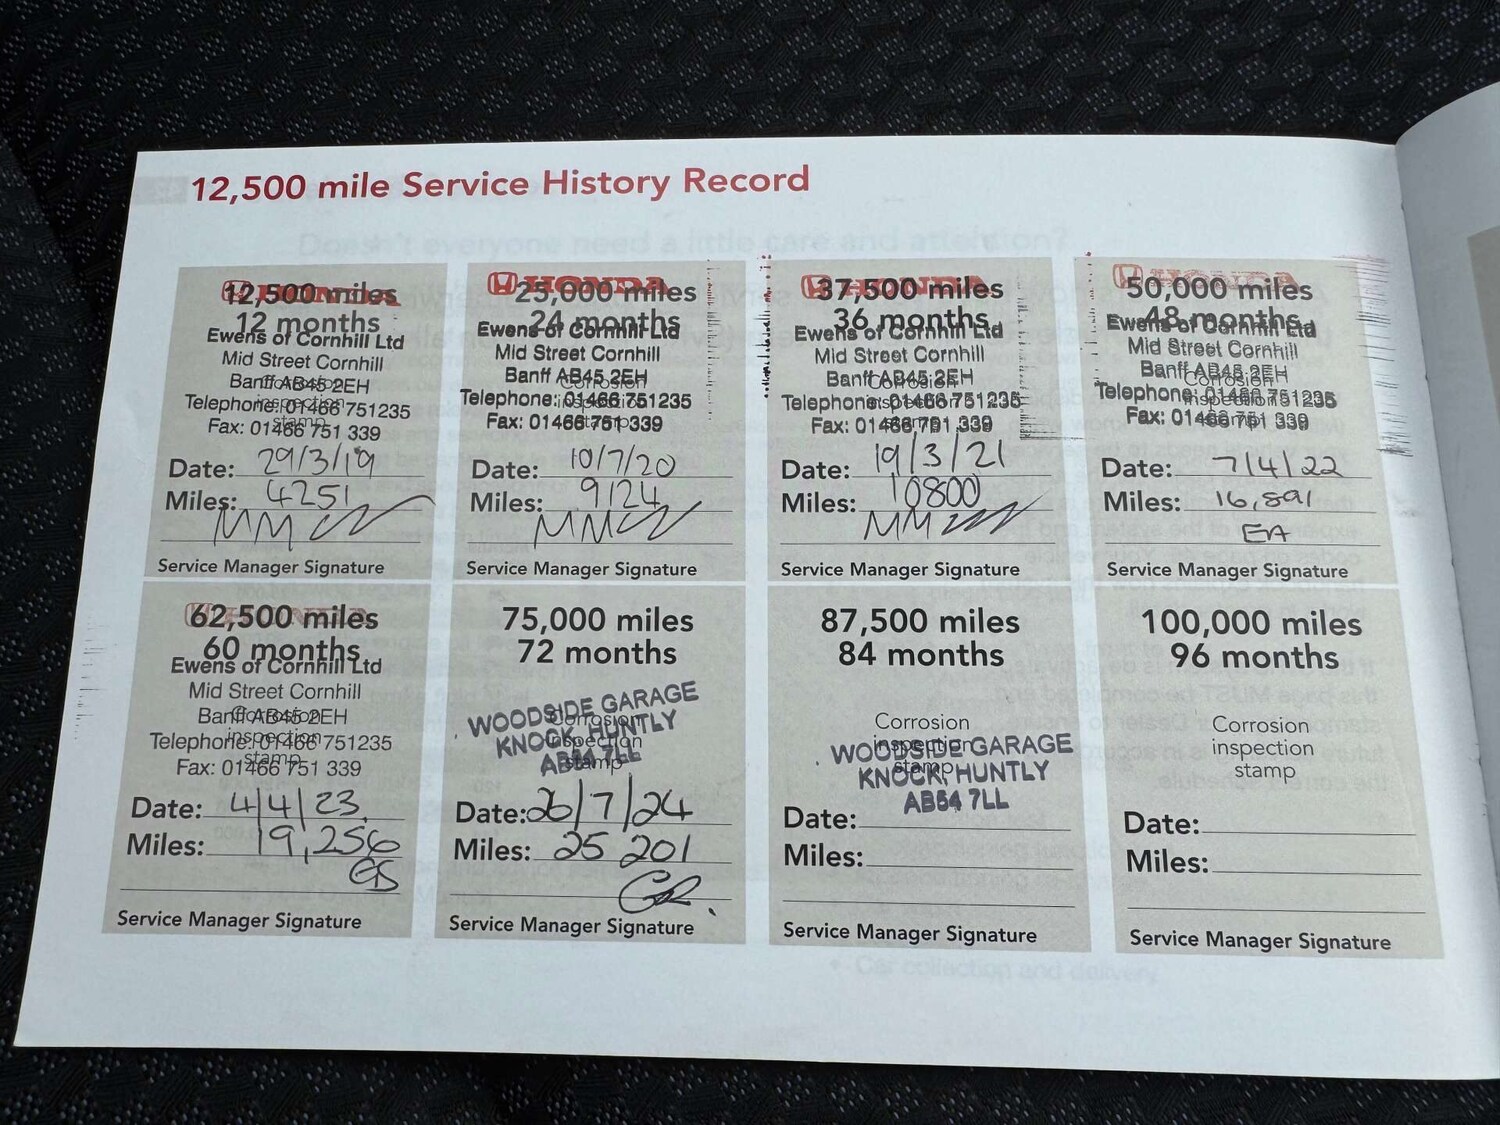 12,500 mile Service History Record
HONDA
12,500 miles
12 months
Ewens of Cornhill Ltd
Mid Street Cornhill
Banff AB45 2EH
Corrosion
inspection
stamp
Telephone: 01466 751235
Fax: 01466 751 339
Date: 29/3/19
Miles: 4251
MM
Service Manager Signature
HONDA
25,000 miles
24 months
Ewens of Cornhill Ltd
Mid Street Cornhill
Banff AB45 2EH
Corrosion
inspection
stamp
Telephone: 01466 751235
Fax: 01466 751 339
Date: 10/7/20
Miles: 9124
MM
Service Manager Signature
HONDA
37,500 miles
36 months
Ewens of Cornhill Ltd
Mid Street Cornhill
Banff AB45 2EH
Corrosion
inspection
stamp
Telephone: 01466 751235
Fax: 01466 751 339
Date: 19/3/21
Miles: 10800
MM
Service Manager Signature
HONDA
50,000 miles
48 months
Ewens of Cornhill Ltd
Mid Street Cornhill
Banff AB45 2EH
Corrosion
inspection
stamp
Telephone: 01466 751235
Fax: 01466 751 339
Date: 7/4/22
Miles: 16,891
EA
Service Manager Signature
HONDA
62,500 miles
60 months
Ewens of Cornhill Ltd
Mid Street Cornhill
Banff AB45 2EH
Corrosion
inspection
stamp
Telephone: 01466 751235
Fax: 01466 751 339
Date: 4/4/23
Miles: 19,256
Service Manager Signature
75,000 miles
72 months
WOODSIDE GARAGE
KNOCK, HUNTLY
AB54 7LL
Corrosion
inspection
stamp
Date: 26/7/24
Miles: 25 201
Service Manager Signature
87,500 miles
84 months
Corrosion
inspection
stamp
WOODSIDE GARAGE
KNOCK, HUNTLY
AB54 7LL
Date:
Miles:
Service Manager Signature
100,000 miles
96 months
Corrosion
inspection
stamp
Date:
Miles:
Service Manager Signature